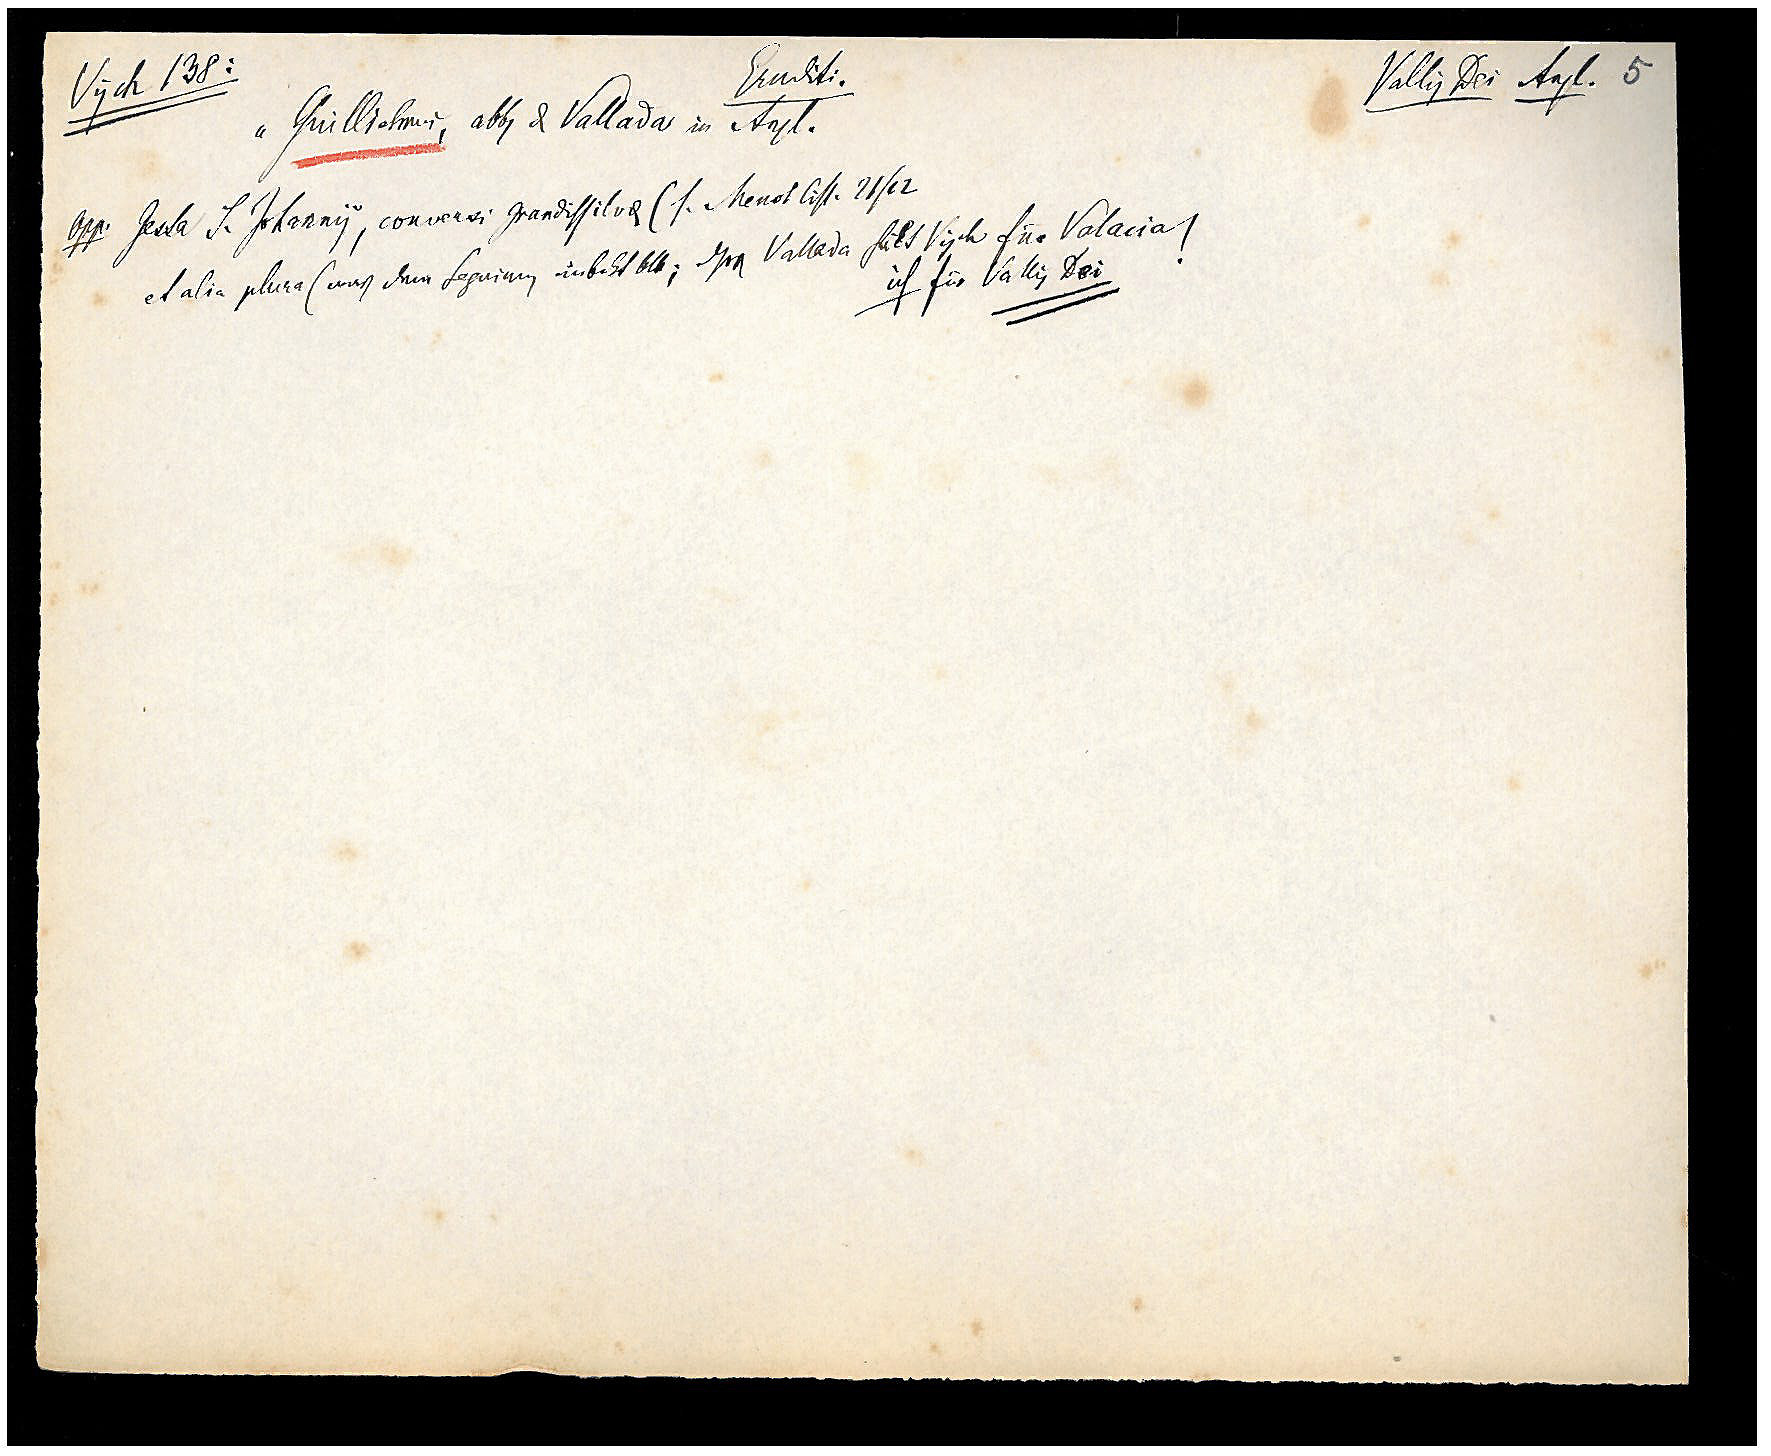 Vych 138:
Eruditi.
Vallis Dei Angl. 5
„ Guillielmus, abbs de Vallada in Angl.
Opp: Gesta S. Johannis, conversi Grandissilvae (s. Menol Cist. 21/12
et alia plura ( dem Seguinus unbekt ; Vallada hält Vych für Valacia!
ich für Vallis Dei